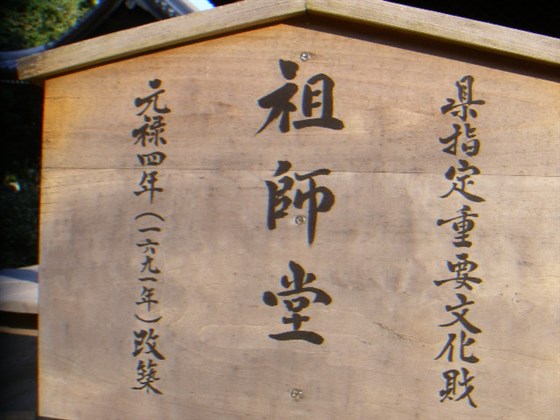 県指定重要文化財
祖師堂
元禄四年(一六九一年)改築